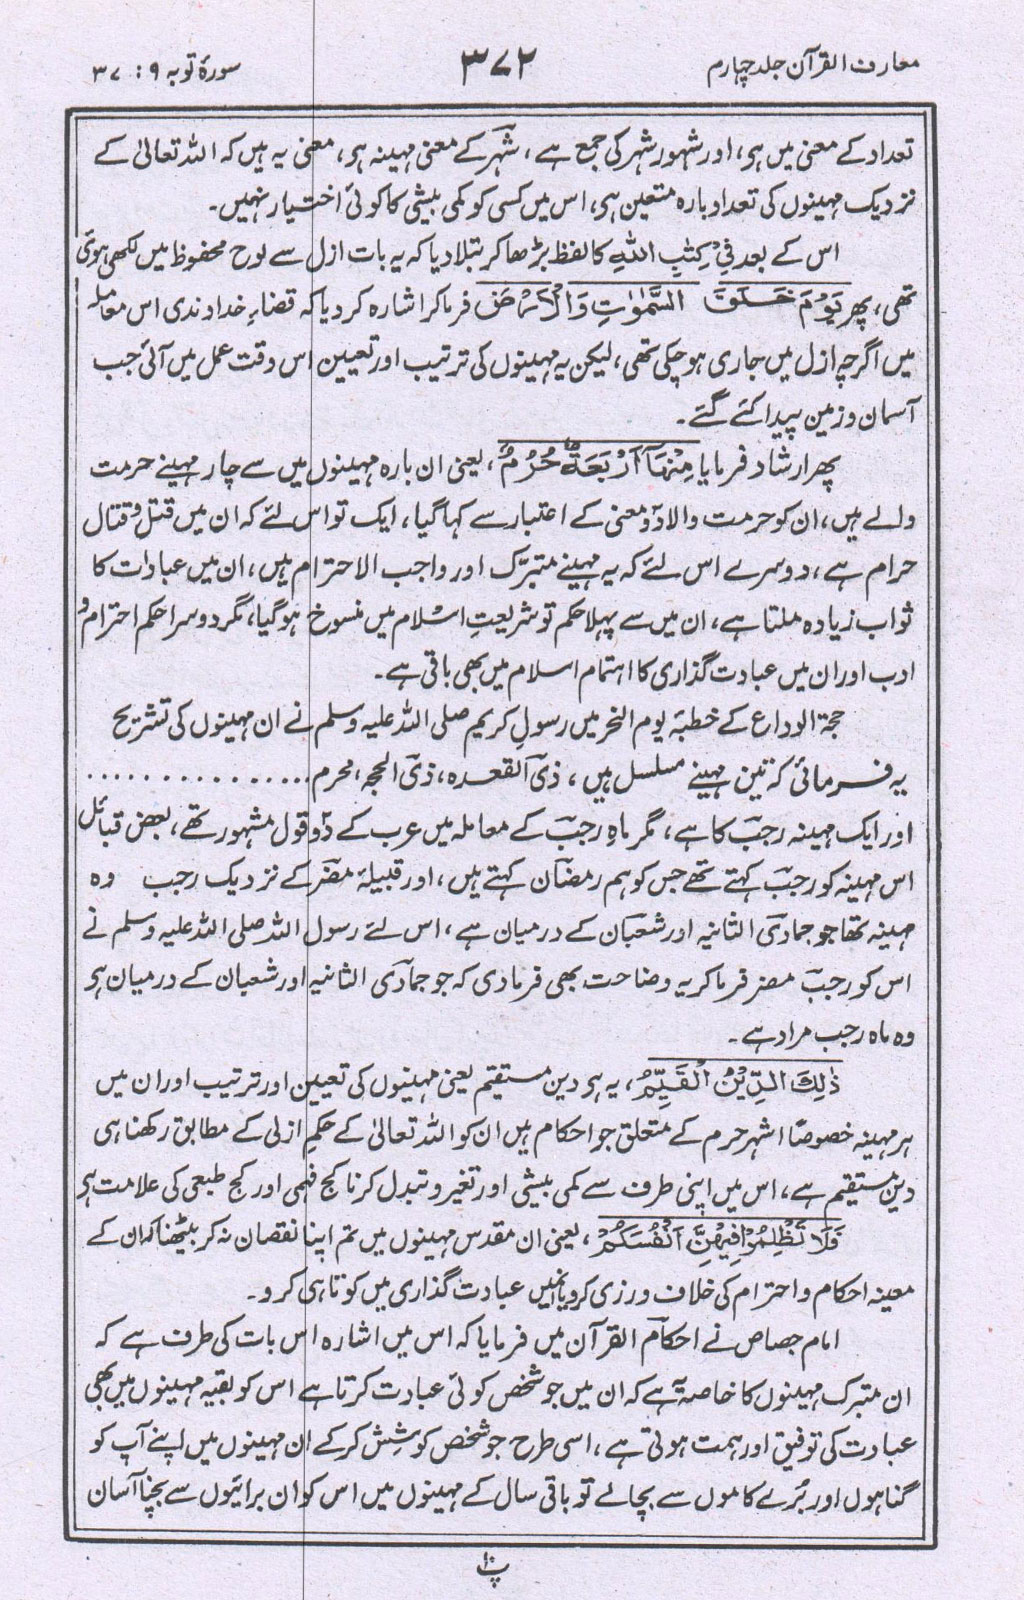 معارف القرآن جلد چہارم
۳۷۲
سورۂ توبہ ۹ : ۳۷
تعداد کے معنی میں ہی، اور شہور شہر کی جمع ہے، شہر کے معنی مہینہ ہی، معنی یہ ہیں کہ اللہ تعالیٰ کے
نزدیک مہینوں کی تعداد بارہ متعین ہی، اس میں کسی کو کمی بیشی کا کوئی اختیار نہیں۔
اس کے بعد فِیْ کِتٰبِ اللہِ کا لفظ بڑھا کر بتلا دیا کہ یہ بات ازل سے لوح محفوظ میں لکھی ہوئی
تھی، پھر یَوْمَ خَلَقَ السَّمٰوٰتِ وَالْاَرْضَ فرما کر اشارہ کر دیا کہ قضاء خداوندی اس معاملہ
میں اگرچہ ازل میں جاری ہو چکی تھی، لیکن یہ مہینوں کی ترتیب اور تعیین اس وقت عمل میں آئی جب
آسمان و زمین پیدا کئے گئے۔
پھر ارشاد فرمایا مِنْہَآ اَرْبَعَۃٌ حُرُمٌ، یعنی ان بارہ مہینوں میں سے چار مہینے حرمت
والے ہیں، ان کو حرمت والا دو معنی کے اعتبار سے کہا گیا، ایک تو اس لئے کہ ان میں قتل و قتال
حرام ہے، دوسرے اس لئے کہ یہ مہینے متبرک اور واجب الاحترام ہیں، ان میں عبادات کا
ثواب زیادہ ملتا ہے، ان میں سے پہلا حکم تو شریعتِ اسلام میں منسوخ ہو گیا، مگر دوسرا حکم احترام و
ادب اور ان میں عبادت گذاری کا اہتمام اسلام میں بھی باقی ہے۔
حجۃ الوداع کے خطبۂ یوم النحر میں رسولِ کریم صلی اللہ علیہ وسلم نے ان مہینوں کی تشریح
یہ فرمائی کہ تین مہینے مسلسل ہیں، ذی القعدہ، ذی الحجہ، محرم ................
اور ایک مہینہ رجب کا ہے، مگر ماہِ رجب کے معاملہ میں عرب کے دو قول مشہور تھے، بعض قبائل
اس مہینہ کو رجب کہتے تھے جس کو ہم رمضان کہتے ہیں، اور قبیلۂ مضر کے نزدیک رجب وہ
مہینہ تھا جو جمادی الثانیہ اور شعبان کے درمیان ہے، اس لئے رسول اللہ صلی اللہ علیہ وسلم نے
اس کو رجب مضر فرما کر یہ وضاحت بھی فرما دی کہ جو جمادی الثانیہ اور شعبان کے درمیان ہی
وہ ماہ رجب مراد ہے۔
ذٰلِکَ الدِّیْنُ الْقَیِّمُ، یہ ہی دین مستقیم یعنی مہینوں کی تعیین اور ترتیب اور ان میں
ہر مہینہ خصوصاً اشہر حرم کے متعلق جو احکام ہیں ان کو اللہ تعالیٰ کے حکم ازلی کے مطابق رکھنا ہی
دین مستقیم ہے، اس میں اپنی طرف سے کمی بیشی اور تغیر و تبدل کرنا کج فہمی اور کج طبعی کی علامت ہی
فَلَا تَظْلِمُوْا فِیْہِنَّ اَنْفُسَکُمْ، یعنی ان مقدس مہینوں میں تم اپنا نقصان نہ کر بیٹھنا کہ ان کے
معینہ احکام و احترام کی خلاف ورزی کرو یا انہیں عبادت گذاری میں کوتاہی کرو۔
امام جصاص نے احکام القرآن میں فرمایا کہ اس میں اشارہ اس بات کی طرف ہے کہ
ان متبرک مہینوں کا خاصہ ہے کہ ان میں جو شخص کوئی عبادت کرتا ہے اس کو بقیہ مہینوں میں بھی
عبادت کی توفیق اور ہمت ہوتی ہے، اسی طرح جو شخص کوشش کر کے ان مہینوں میں اپنے آپ کو
گناہوں اور بُرے کاموں سے بچا لے تو باقی سال کے مہینوں میں اس کو ان برائیوں سے بچنا آسان